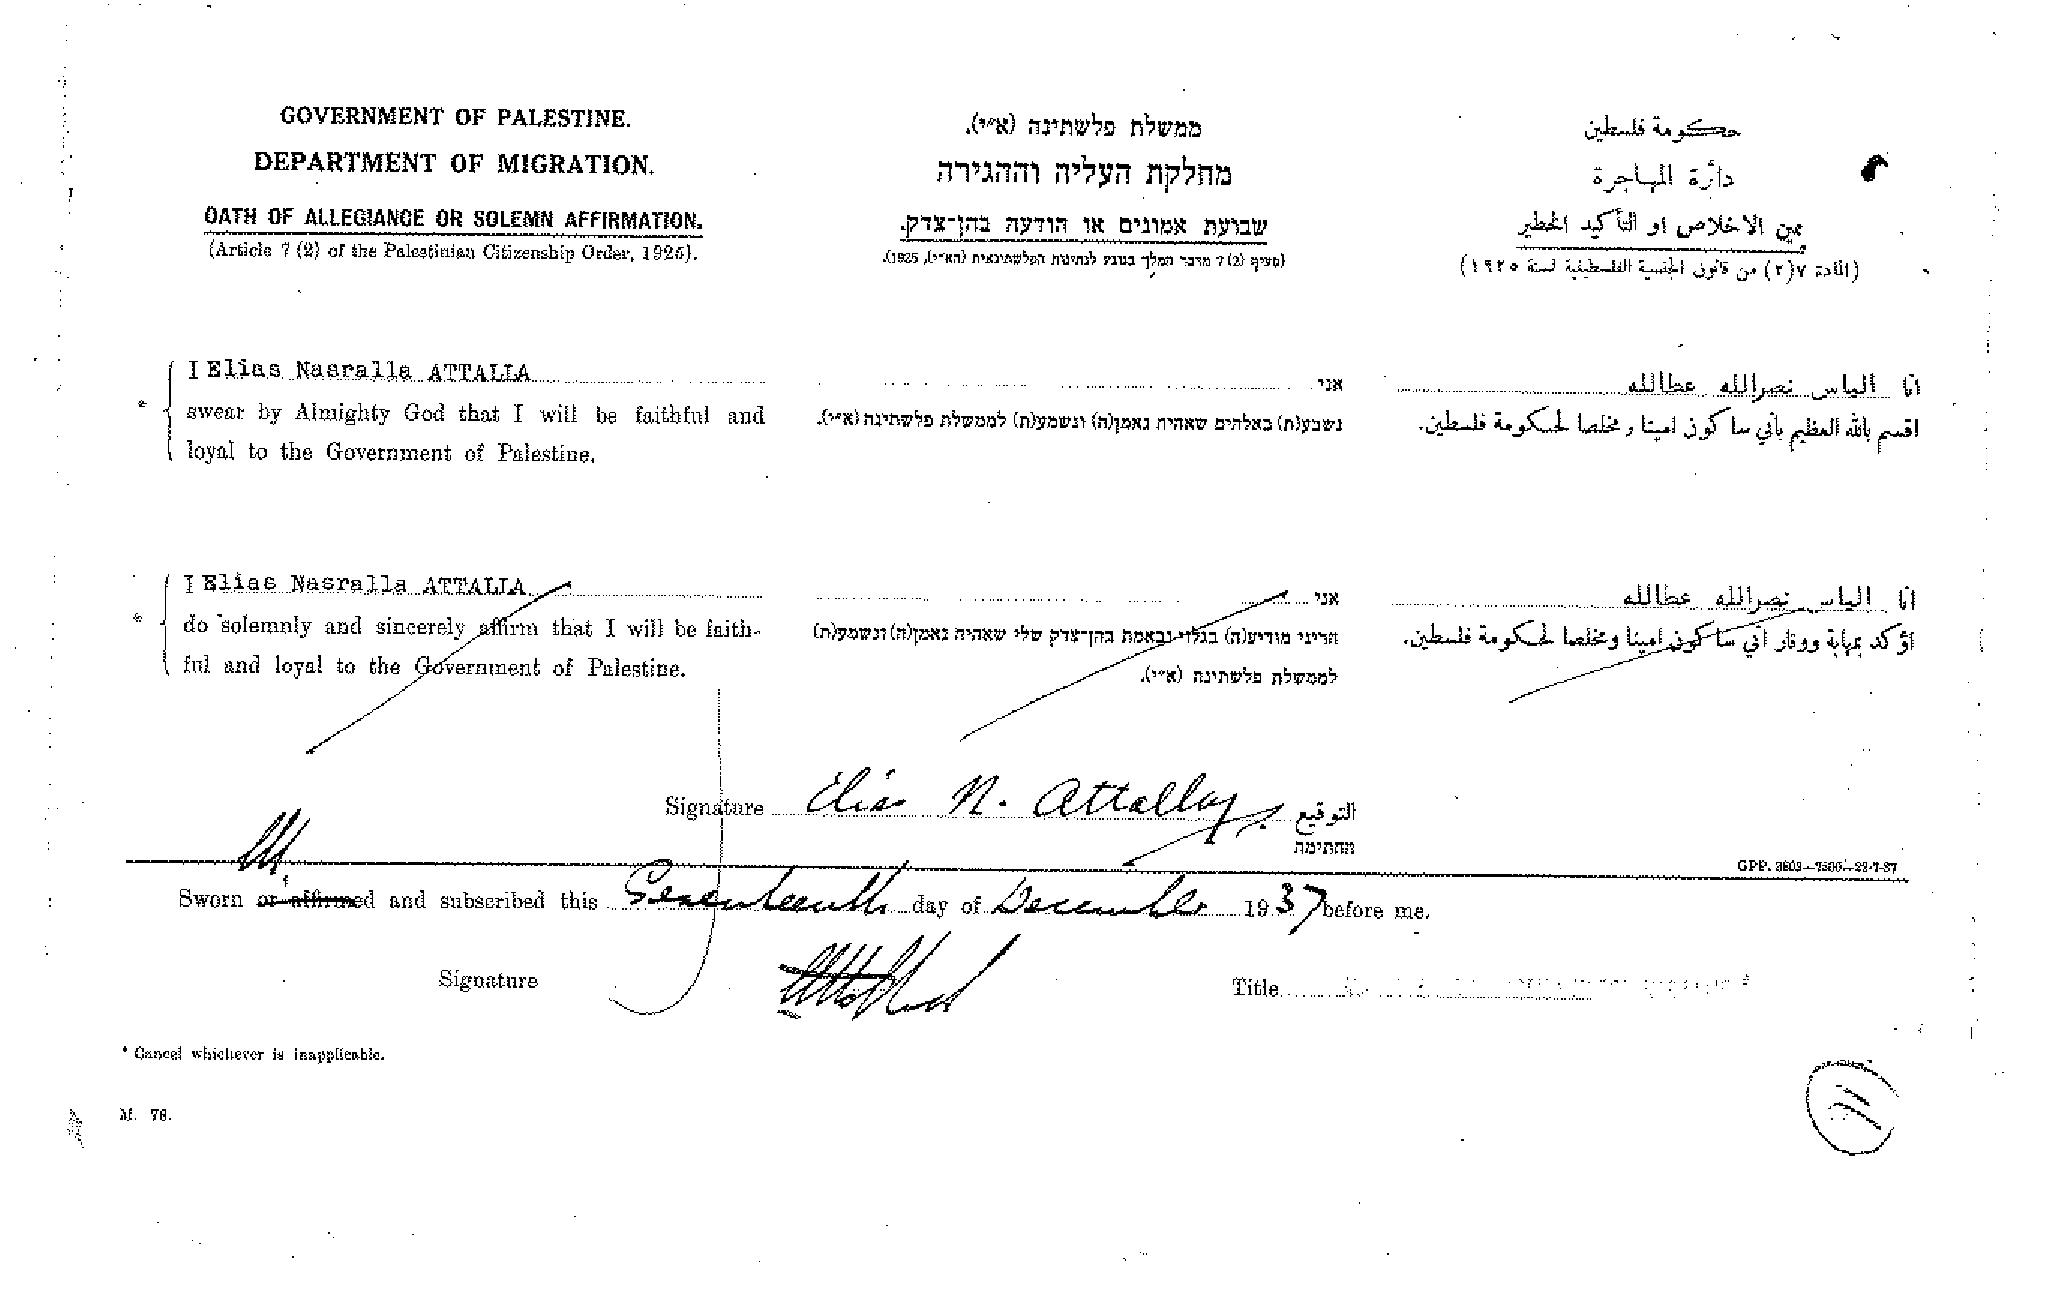 GOVERNMENT OF PALESTINE.
DEPARTMENT OF MIGRATION.
OATH OF ALLEGIANCE OR SOLEMN AFFIRMATION.
(Article 7 (2) of the Palestinian Citizenship Order, 1925).
ממשלת פלשתינה (א״י).
מחלקת העליה וההגירה
שבועת אמונים או הודעה בהן־צדק.
(סעיף 7 (2) מדבר המלך במועצה לנתינות הפלשתינאית (הא״י), 1925).
حكومة فلسطين
دائرة المهاجرة
يمين الاخلاص او التأكيد الخطير
(المادة ٧(٢) من قانون الجنسية الفلسطينية لسنة ١٩٢٥)
* I Elias Nasralla ATTALLA
swear by Almighty God that I will be faithful and
loyal to the Government of Palestine.
אני
נשבע(ת) באלהים שאהיה נאמן(ה) ונשמע(ת) לממשלת פלשתינה (א״י).
انا الياس نصرالله عطالله
اقسم بالله العظيم بأني سأكون امينا ومخلصا لحكومة فلسطين.
* I Elias Nasralla ATTALLA
do solemnly and sincerely affirm that I will be faith-
ful and loyal to the Government of Palestine.
אני
הריני מודיע(ה) בגלוי ובאמת בהן־צדק שלי שאהיה נאמן(ה) ונשמע(ת)
לממשלת פלשתינה (א״י).
انا الياس نصرالله عطالله
اؤكد بمهابة ووقار اني سأكون امينا ومخلصا لحكومة فلسطين.
Signature Elias N. Attallay. التوقيع
החתימה
GPP. 3803—7500—23-7-37
Sworn or affirmed and subscribed this Seventeenth day of December 1937 before me.
Signature
Title
* Cancel whichever is inapplicable.
M. 76.